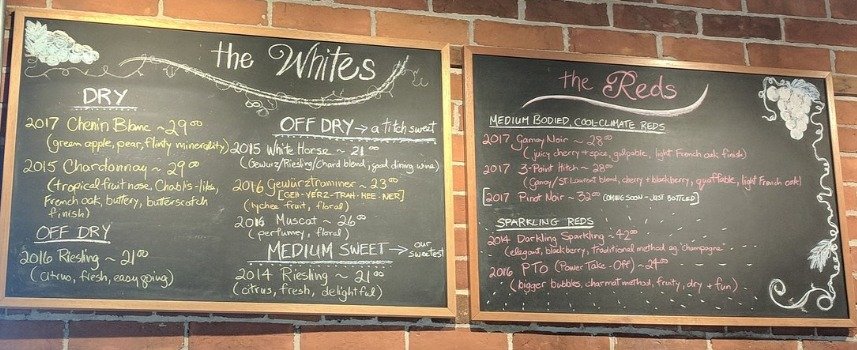 the Whites
DRY
2017 Chenin Blanc ~ 29.00
(green apple, pear, flinty minerality)
2015 Chardonnay ~ 29.00
(tropical fruit nose, Chablis-like,
French oak, buttery, butterscotch
finish)
OFF DRY
2016 Riesling ~ 21.00
(citrus, fresh, easy going)
OFF DRY → a titch sweet
2015 White Horse ~ 21.00
(Gewurz/Riesling/Chard blend, good dining wine)
2016 Gewürztraminer ~ 23.00
[GEH-VERZ-TRAH-MEE-NER]
(lychee fruit, floral)
2016 Muscat ~ 26.00
(perfumey, floral)
MEDIUM SWEET → our
sweetest
2014 Riesling ~ 21.00
(citrus, fresh, delightful)
the Reds
MEDIUM BODIED, COOL-CLIMATE REDS
2017 Gamay Noir ~ 28.00
(juicy cherry + spice, gulpable, light French oak finish)
2017 3-Point Hitch ~ 28.00
(Gamay/St. Laurent blend, cherry + blackberry, quaffable, light French oak)
[2017 Pinot Noir ~ 32.00 (COMING SOON - JUST BOTTLED)]
SPARKLING REDS
2014 Darkling Sparkling ~ 42.00
(elegant, blackberry, traditional method eg "champagne"
2016 PTO (Power Take-Off) ~ 24.00
(bigger bubbles, charmat method, fruity, dry + fun)